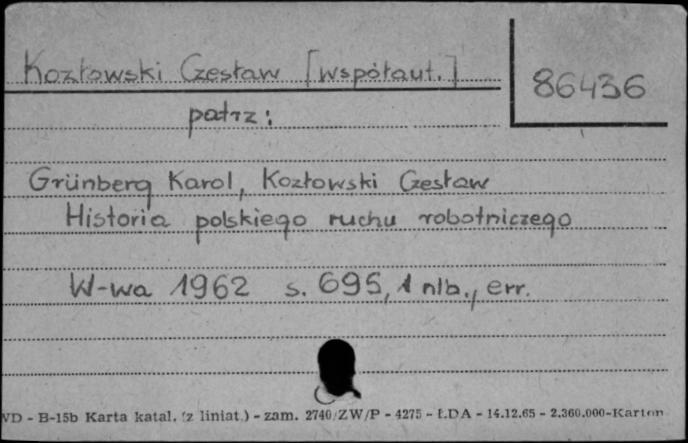 Kozłowski Czesław [współaut.]
86436
patrz:
Grünberg Karol, Kozłowski Czesław
Historia polskiego ruchu robotniczego
W-wa 1962 s. 695, 1 nlb., err.
WD - B-15b Karta katal. (z liniat.) - zam. 2740/ZW/P - 4275 - ŁDA - 14.12.65 - 2.360.000-Karton